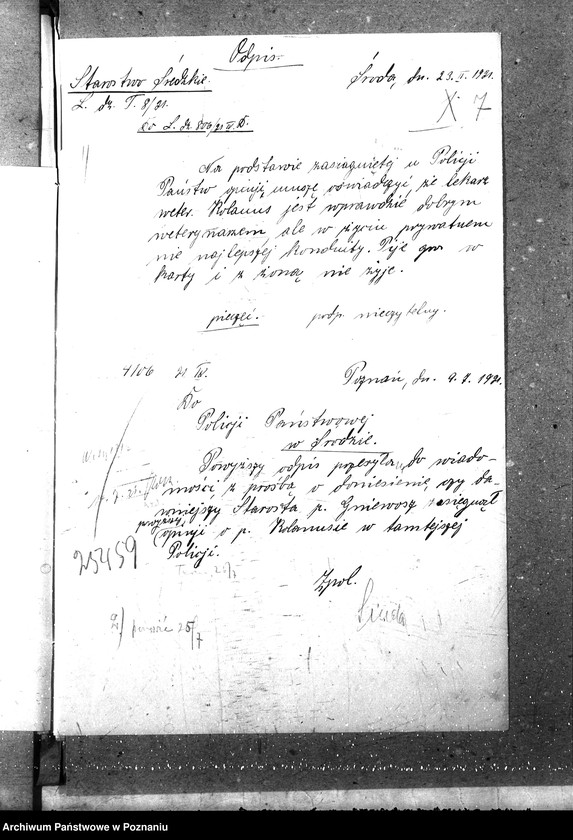 Odpis.
Starostwo Średzkie.
Środa, dn. 23. V. 1921.
L. dz. T. 8/21.
X. 7
Do L. dz. 806/21 IV. D.
Na podstawie zasiągniętej u Policji
Państw opinji muszę oświadczyć, że lekarz
weter. Kolanus jest wprawdzie dobrym
weterynarzem ale w życiu prywatnem
nie najlepszej konduity. Pije gra w
karty i z żoną nie żyje.
pieczęć. podp. nieczytelny.
4106 21 IV.
Poznań, dn. 9. 7. 1921.
Do
Policji Państwowej
w Środzie.
Powyższy odpis przesyłam do wiado-
mości z prośbą o doniesienie czy da-
wniejszy Starosta p. Gniewosz zasięgnął
opinji o p. Kolanusie w tamtejszej
Policji.
25459
25/7
Zpol.
25/7
Archiwum Państwowe w Poznaniu